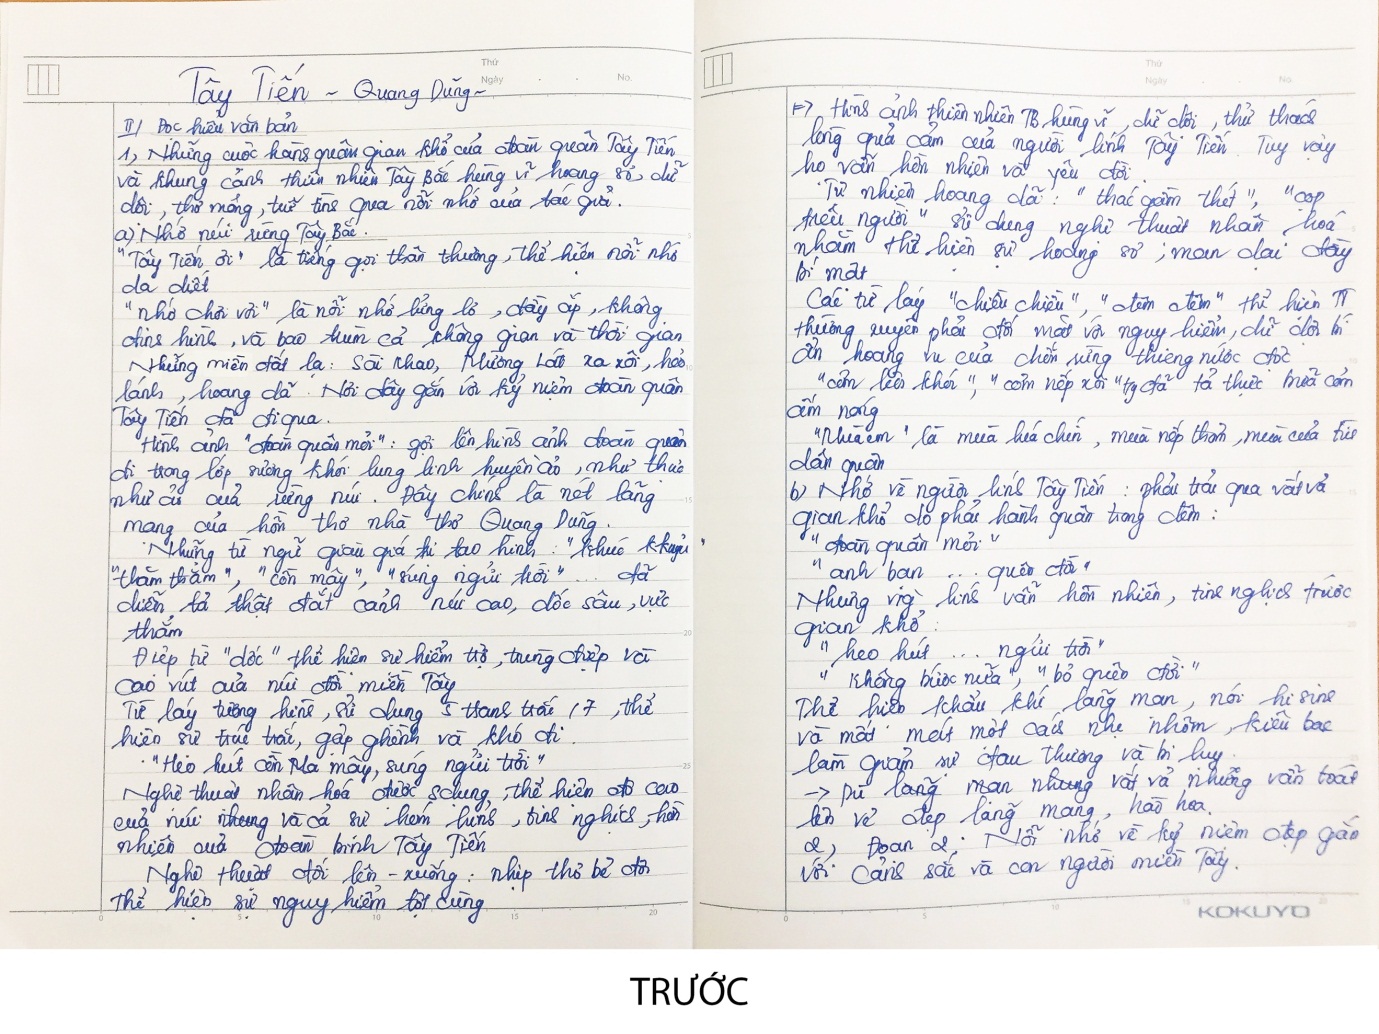 Thứ
Ngày . . No.
Tây Tiến ~ Quang Dũng ~
II/ Đọc hiểu văn bản
1, Những cuộc hành quân gian khổ của đoàn quân Tây Tiến
và khung cảnh thiên nhiên Tây Bắc hùng vĩ hoang sơ, dữ
dội, thơ mộng, trữ tình qua nỗi nhớ của tác giả.
a) Nhớ núi rừng Tây Bắc.
"Tây Tiến ơi" là tiếng gọi thân thương, thể hiện nỗi nhớ
da diết
"nhớ chơi vơi" là nỗi nhớ lửng lơ, đầy ắp, không
định hình, và bao trùm cả không gian và thời gian
Những miền đất lạ: Sài Khao, Mường Lát xa xôi, hẻo
lánh, hoang dã. Nơi đây gắn với kỷ niệm đoàn quân
Tây Tiến đã đi qua.
Hình ảnh "đoàn quân mỏi": gợi lên hình ảnh đoàn quân
đi trong lớp sương khói lung linh huyền ảo, như thực
như ảo của rừng núi. Đây chính là nét lãng
mạng của hồn thơ nhà thơ Quang Dũng.
Những từ ngữ giàu giá trị tạo hình: "khúc khuỷu"
"thăm thẳm", "cồn mây", "súng ngửi trời"... đã
diễn tả thật đắt cảnh núi cao, dốc sâu, vực
thẳm
Điệp từ "dốc" thể hiện sự hiểm trở, trùng điệp và
cao vút của núi đồi miền Tây
Từ láy tượng hình, sử dụng 5 thanh trắc /7, thể
hiện sự trúc trắc, gập ghềnh và khó đi.
"Heo hút cồn Ma mây, súng ngửi trời"
Nghệ thuật nhân hoá được sdụng, thể hiện độ cao
của núi nhưng và cả sự hóm hỉnh, tinh nghịch, hồn
nhiên của đoàn binh Tây Tiến
Nghệ thuật đối lên - xuống: nhịp thơ bẻ đôi
thể hiện sự nguy hiểm tột cùng
Thứ
Ngày . . No.
=> Hình ảnh thiên nhiên TB hùng vĩ, dữ dội, thử thách
lòng quả cảm của người lính Tây Tiến. Tuy vậy
họ vẫn hồn nhiên và yêu đời.
Từ nhiên hoang dã: "thác gầm thét", "cọp
trêu người" sử dụng nghệ thuật nhân hoá
nhằm thể hiện sự hoang sơ; man dại đầy
bí mật
Các từ láy "chiều chiều", "đêm đêm" thể hiện TT
thường xuyên phải đối mặt với nguy hiểm, dữ dội bí
ẩn hoang vu của chốn rừng thiêng nước độc
"cơm lên khói", "cơm nếp xôi" tg đã tả thực bữa cơm
ấm nóng
"Mùa em" là mùa lúa chín, mùa nếp thơm, mùa của tình
dân quân
b) Nhớ về người lính Tây Tiến: phải trải qua vất vả
gian khổ do phải hành quân trong đêm:
"đoàn quân mỏi"
"anh bạn ... quên đời"
Nhưng vị lính vẫn hồn nhiên, tinh nghịch trước
gian khổ:
"heo hút ... ngửi trời"
"không bước nữa", "bỏ quên đời"
Thể hiện khẩu khí lãng mạn, nói hi sinh
và mất mát một cách nhẹ nhõm, kiêu bạc
làm giảm sự đau thương và bi lụy.
-> Dù lãng mạn nhưng vất vả nhưng vẫn toát
lên vẻ đẹp lãng mạng, hào hoa.
2, Đoạn 2: Nỗi nhớ về kỷ niệm đẹp gắn
với cảnh sắc và con người miền Tây.
KOKUYO
TRƯỚC